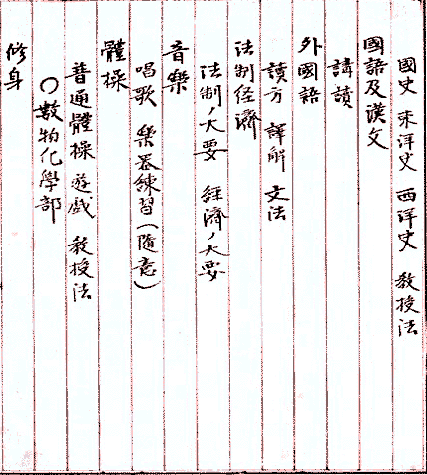 國史 東洋史 西洋史 教授法
國語及漢文
講讀
外國語
讀方 譯解 文法
法制経濟
法制ノ大要 経濟ノ大要
音樂
唱歌 樂器練習(隨意)
體操
普通體操 遊戯 教授法
〇數物化學部
修身